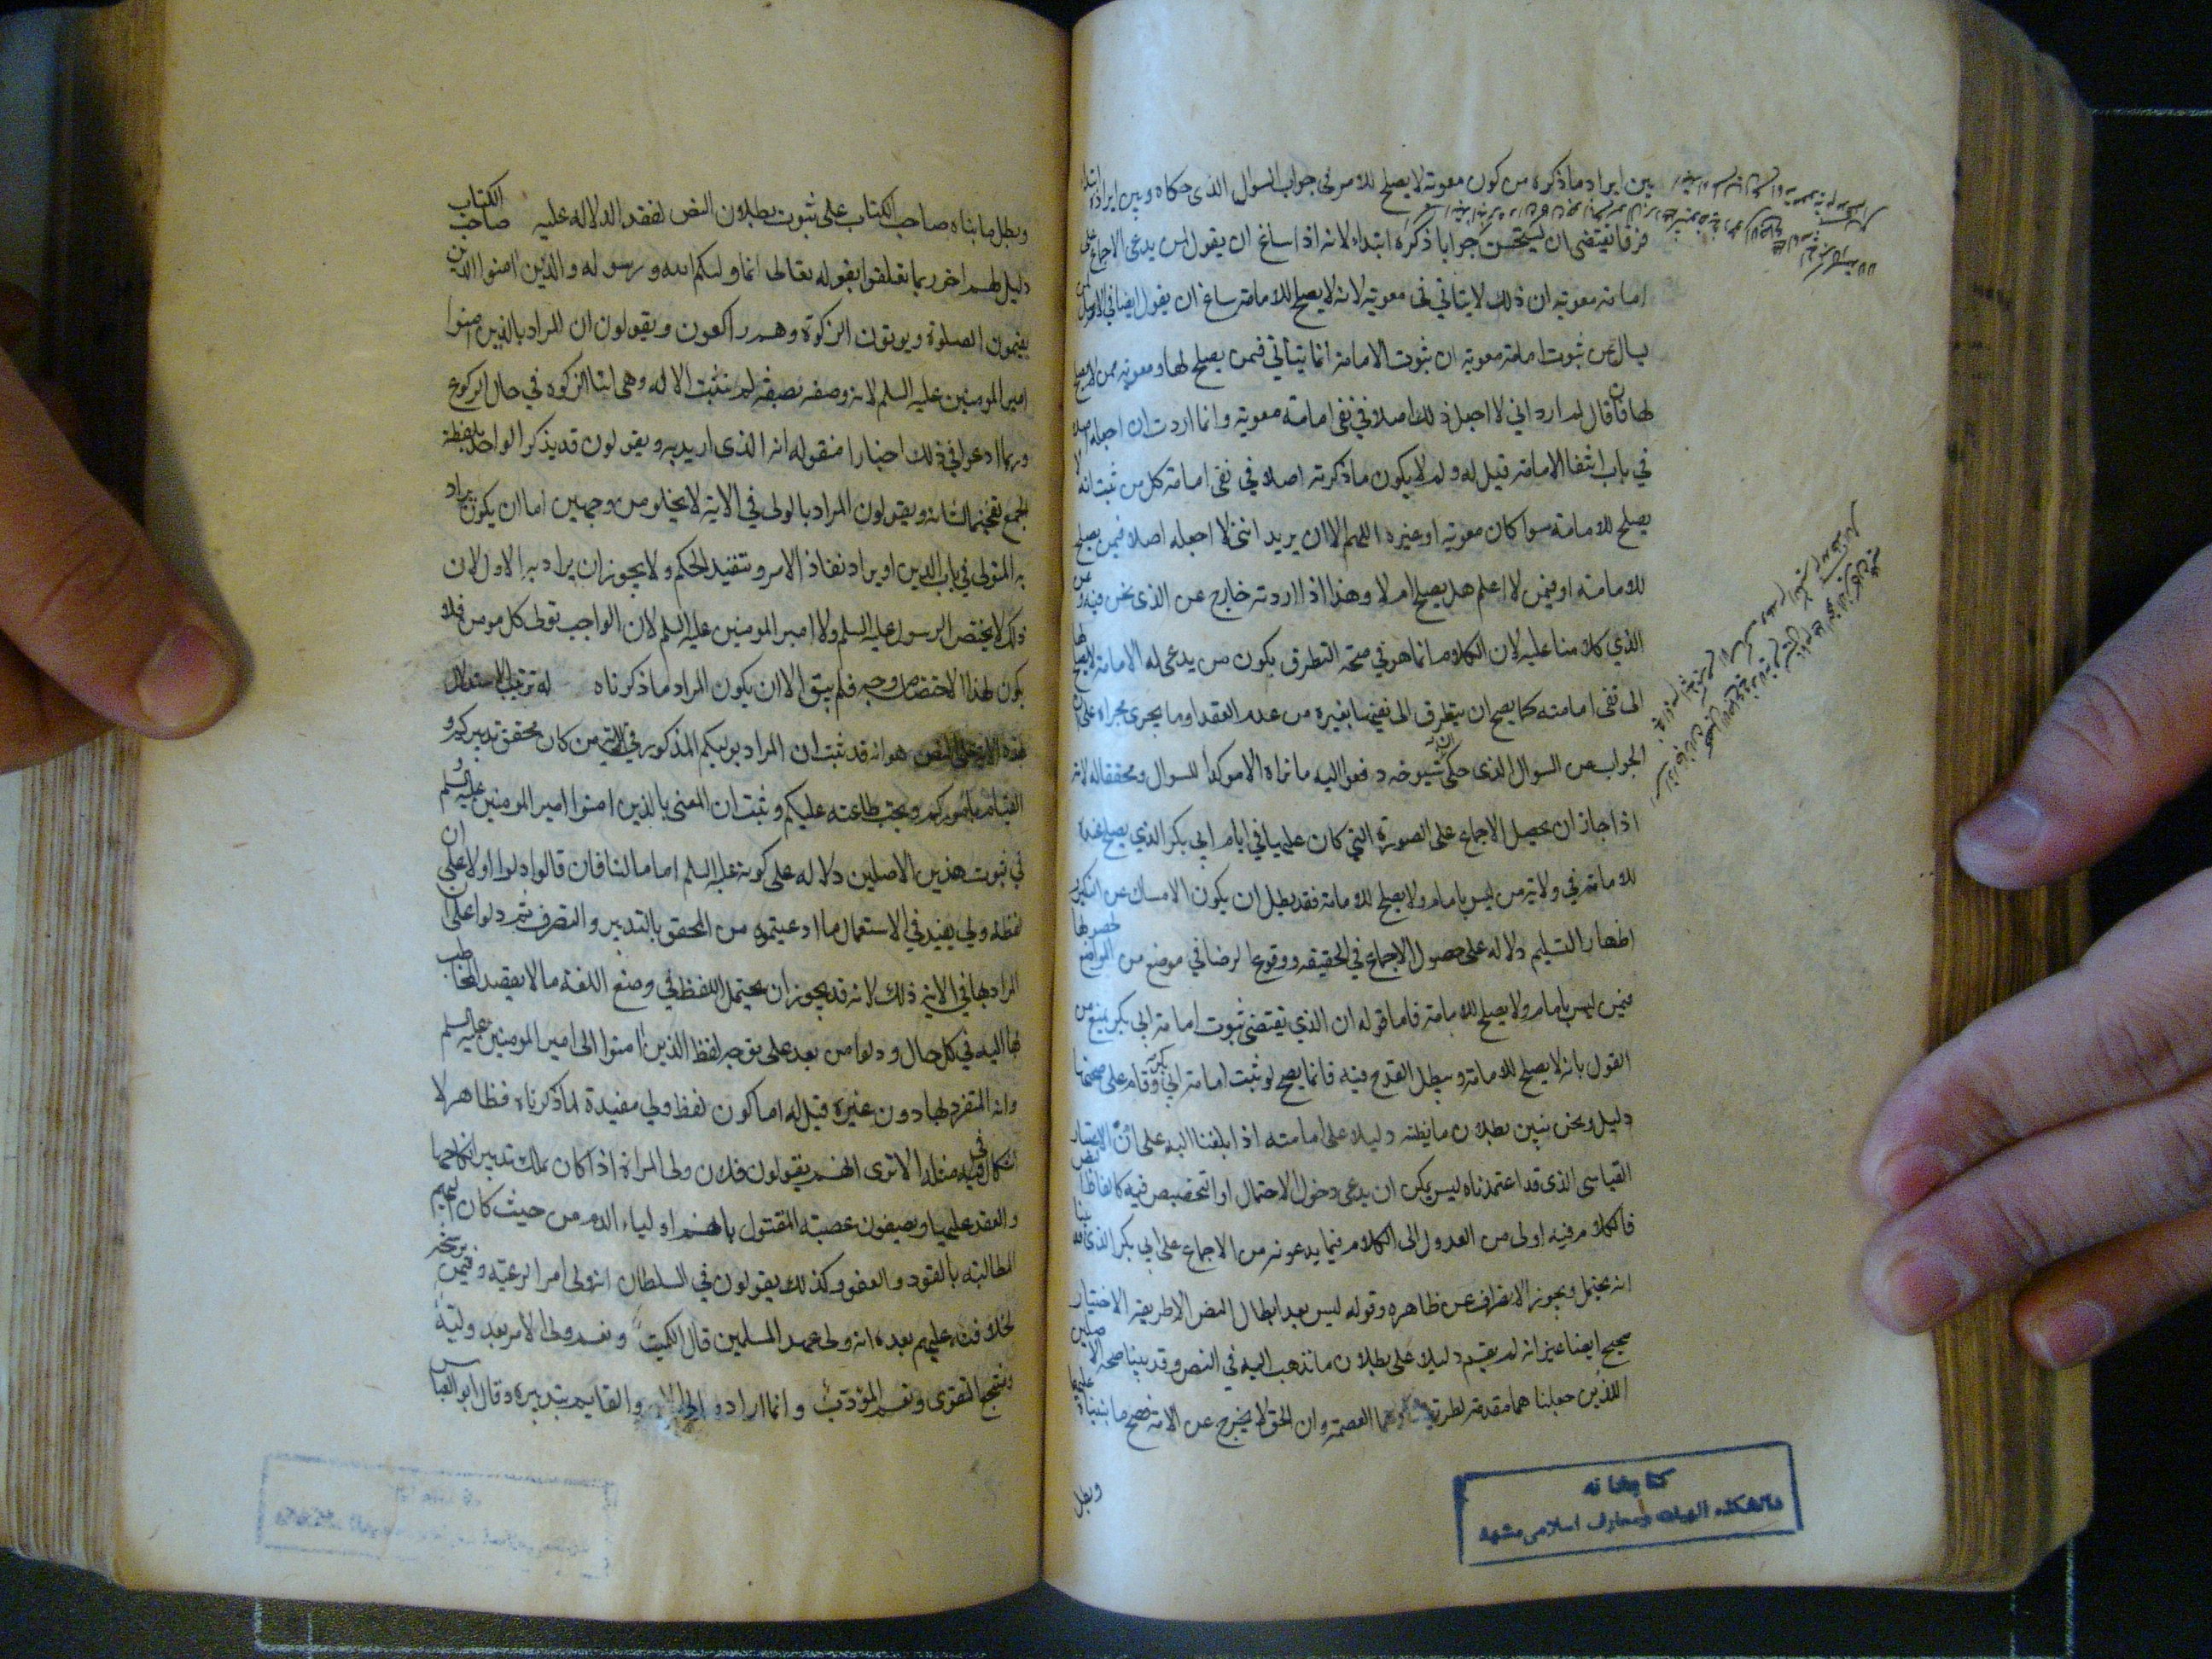 بين ايراد ما ذكره من كون معوية لا يصلح للامر في جواب السوال الذي حكاه وبين ايراده ابتداء
فرقا يقتضي ان يستحسن جوابا ذكره ابتداء لانه اذا ساغ ان يقول لمن يدعى الاجماع على
امامة معوية ان ذلك لا يتاتي في معوية لانه لا يصلح للامامة ساغ ان يقول ايضا في الاول لمن
يسال عن ثبوت امامة معوية ان ثبوت الامامة انما يتاتي فيمن يصلح لها ومعوية ممن لا يصلح
لها فان قال لم ارد اني لا اجعل ذلك اصلا في نفي امامة معوية وانما اردت ان اجعله اصلا
في باب انتفا الامامة قيل له ولم لا يكون ما ذكرته اصلا في نفي امامة كل من ثبت انه لا
يصلح للامامة سوا كان معوية او غيره اللهم الا ان يريد انني لا اجعله اصلا فيمن يصلح
للامامة او فيمن لا اعلم هل يصلح ام لا وهذا اذا اردته خارج عن الذي نحن فيه وعن
الذي كلامنا عليه لان الكلام انما هو في صحة التطرق بكون من يدعى له الامامة لا يصلح لها
الى نفي امامته كما يصح ان يتطرق الى نفيها بغيره من عدم العقد او ما يجرى مجراه على ان
الجواب عن السوال الذي حكى ان شيوخه دفعوا اليه ما نراه الا موكدا للسوال ومحققا له لانه
اذا جاز ان يحصل الاجماع على الصورة التي كان عليها في ايام ابي بكر الذي يصلح عنده
للامامة في ولاية من ليس بامام ولا يصلح للامامة فقد بطل ان يكون الامساك عن النكير و
اظهار التسليم دلالة على حصول الاجماع في الحقيقه ووقوع الرضا في موضع من المواضع لحصولها
فيمن ليس بامام ولا يصلح للامامة فاما قوله ان الذي يقتضي ثبوت امامة ابي بكر يمنع من
القول بانه لا يصلح للامامة ويبطل القدح فيه فانما يصح لو ثبت امامة ابي بكر وقام على صحتها
دليل ونحن نبين بطلان ما يظنه دليلا على امامته اذا بلغنا اليه على ان الاعتبار
القياسي الذي قد اعتمدناه ليس يمكن ان يدعى دخول الاحتمال او التخصيص فيه كالفاظ النص
فالكلام فيه اولى من العدول الى الكلام فيما يدعونه من الاجماع على ابي بكر الذي قد بينا
انه يحتمل ويجوز الانصراف عن ظاهره وقوله ليس بعد ابطال النص الا طريقة الاختيار
صحيح ايضا غير انه لم يقم دليلا على بطلان ما نذهب اليه في النص وقد بينا صحة الاصلين
اللذين جعلنا هما مقدمة لطر وهما العصمة وان الحق لا يخرج عن الامة فصح ما بنيناه عليهما
وبطل
كتابخانه
دانشكده الهيات و معارف اسلامي مشهد
وبطل ما بناه صاحب الكتاب على ثبوت بطلان النص لفقد الدلالة عليه صاحب الكتاب
دليل لهم اخر ربما تعلقوا بقوله تعالى انما وليكم الله ورسوله والذين امنوا الذين
يقيمون الصلوة ويوتون الزكوة وهم راكعون ويقولون ان المراد بالذين امنوا
امير المومنين عليه السلم لانه وصفه بصفة لم تثبت الا له وهي ايتا الزكوه في حال الركوع
وربما ادعوا في ذلك اخبارا منقوله انه الذي اريد به ويقولون قد يذكر الواحد بلفظة
الجمع تفخيما لشانه ويقولون المراد بالولي في الاية لا يخلو من وجهين اما ان يكون يراد
به المتولى في باب الدين او يراد نفاذ الامر وتنفيذ الحكم ولا يجوز ان يراد به الاول لان
ذلك لا يختص الرسول عليه السلم ولا امير المومنين عليه السلم لان الواجب تولى كل مومن فلا
يكون لهذا الاختصاص وجه فلم يبق الا ان يكون المراد ما ذكرناه له ترتيب الاستدلال
بهذه الاية على النص هو انه قد ثبت ان المراد بوليكم المذكور في الاية من كان محقق تدبيركم و
القيام باموركم ويجب طاعته عليكم وثبت ان المعنى بالذين امنوا امير المومنين عليه السلم و
في ثبوت هذين الاصلين دلالة على كونه عليه السلم اماما لنا فان قالوا دلوا اولا على ان
لفظة ولي يفيد في الاستعمال ما ادعيتموه من المحقق بالتدبير والتصرف ثم دلوا على ان
المراد بها في الاية ذلك لانه قد يجوز ان يحتمل اللفظ في وضع اللغة ما لا يقصد المخاطب
بها اليه في كل حال ودلوا من بعد على توجه لفظ الذين امنوا الى امير المومنين عليه السلم
وانه المتفرد بها دون غيره قيل له اما كون لفظ ولي مفيدة لما ذكرناه فظاهر لا
اشكال في مثله الا ترى انهم يقولون فلان ولى المراة اذا كان يملك تدبير انكاحها
والعقد عليها ويصفون عصبة المقتول بانهم اولياء الدم من حيث كان اليهم
المطالبة بالقود والعفو وكذلك يقولون في السلطان انه ولى امر الرعية وفيمن يرشحه
لخلافته عليهم بعده انه ولى عهد المسلمين قال الكميت ونعم ولى الامر بعد وليه
ومنتجع التقوى ونعم المؤدب وانما اراد والقايم بتدبيره وقال ابو العباس